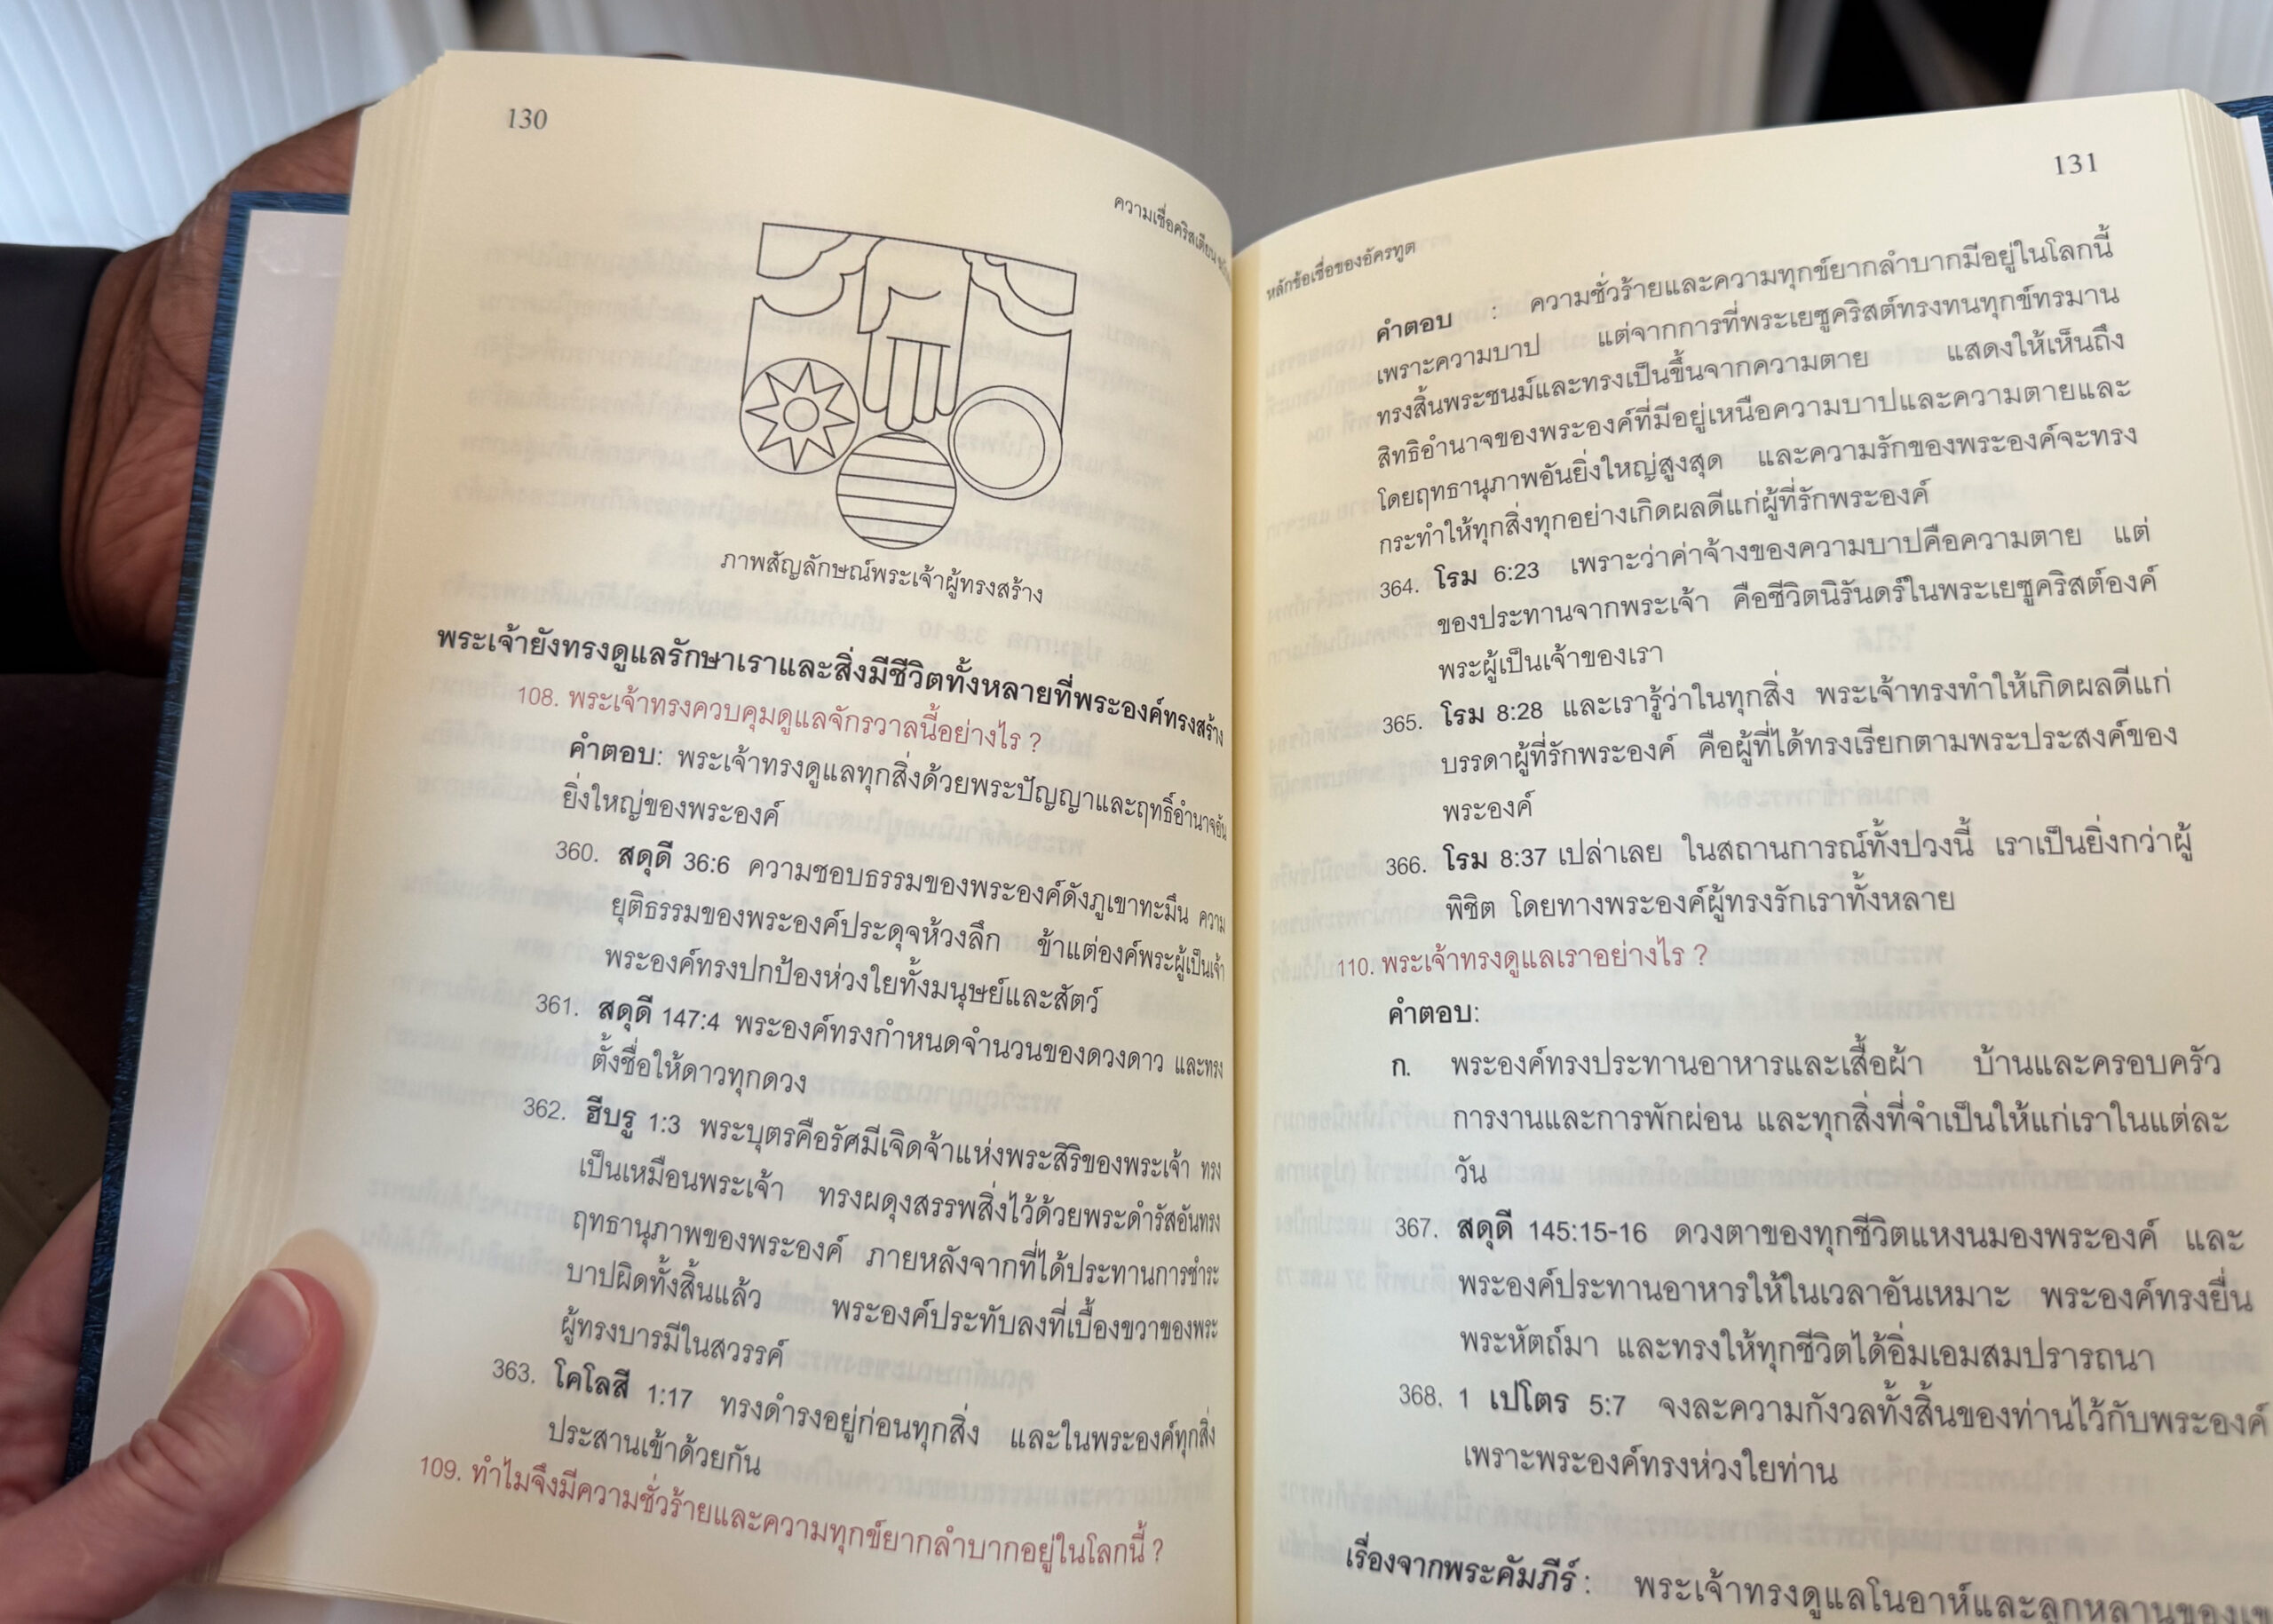 130
ความเชื่อคริสเตียน
ภาพสัญลักษณ์พระเจ้าผู้ทรงสร้าง
พระเจ้ายังทรงดูแลรักษาเราและสิ่งมีชีวิตทั้งหลายที่พระองค์ทรงสร้าง
108. พระเจ้าทรงควบคุมดูแลจักรวาลนี้อย่างไร ?
คำตอบ: พระเจ้าทรงดูแลทุกสิ่งด้วยพระปัญญาและฤทธิ์อำนาจอัน
ยิ่งใหญ่ของพระองค์
360. สดุดี 36:6 ความชอบธรรมของพระองค์ดังภูเขาทะมึน ความ
ยุติธรรมของพระองค์ประดุจห้วงลึก ข้าแต่องค์พระผู้เป็นเจ้า
พระองค์ทรงปกป้องห่วงใยทั้งมนุษย์และสัตว์
361. สดุดี 147:4 พระองค์ทรงกำหนดจำนวนของดวงดาว และทรง
ตั้งชื่อให้ดาวทุกดวง
362. ฮีบรู 1:3 พระบุตรคือรัศมีเจิดจ้าแห่งพระสิริของพระเจ้า ทรง
เป็นเหมือนพระเจ้า ทรงผดุงสรรพสิ่งไว้ด้วยพระดำรัสอันทรง
ฤทธานุภาพของพระองค์ ภายหลังจากที่ได้ประทานการชำระ
บาปผิดทั้งสิ้นแล้ว พระองค์ประทับลงที่เบื้องขวาของพระ
ผู้ทรงบารมีในสวรรค์
363. โคโลสี 1:17 ทรงดำรงอยู่ก่อนทุกสิ่ง และในพระองค์ทุกสิ่ง
ประสานเข้าด้วยกัน
109. ทำไมจึงมีความชั่วร้ายและความทุกข์ยากลำบากอยู่ในโลกนี้ ?
131
หลักข้อเชื่อของอัครทูต
คำตอบ : ความชั่วร้ายและความทุกข์ยากลำบากมีอยู่ในโลกนี้
เพราะความบาป แต่จากการที่พระเยซูคริสต์ทรงทนทุกข์ทรมาน
ทรงสิ้นพระชนม์และทรงเป็นขึ้นจากความตาย แสดงให้เห็นถึง
สิทธิอำนาจของพระองค์ที่มีอยู่เหนือความบาปและความตายและ
โดยฤทธานุภาพอันยิ่งใหญ่สูงสุด และความรักของพระองค์จะทรง
กระทำให้ทุกสิ่งทุกอย่างเกิดผลดีแก่ผู้ที่รักพระองค์
364. โรม 6:23 เพราะว่าค่าจ้างของความบาปคือความตาย แต่
ของประทานจากพระเจ้า คือชีวิตนิรันดร์ในพระเยซูคริสต์องค์
พระผู้เป็นเจ้าของเรา
365. โรม 8:28 และเรารู้ว่าในทุกสิ่ง พระเจ้าทรงทำให้เกิดผลดีแก่
บรรดาผู้ที่รักพระองค์ คือผู้ที่ได้ทรงเรียกตามพระประสงค์ของ
พระองค์
366. โรม 8:37 เปล่าเลย ในสถานการณ์ทั้งปวงนี้ เราเป็นยิ่งกว่าผู้
พิชิต โดยทางพระองค์ผู้ทรงรักเราทั้งหลาย
110. พระเจ้าทรงดูแลเราอย่างไร ?
คำตอบ:
ก. พระองค์ทรงประทานอาหารและเสื้อผ้า บ้านและครอบครัว
การงานและการพักผ่อน และทุกสิ่งที่จำเป็นให้แก่เราในแต่ละ
วัน
367. สดุดี 145:15-16 ดวงตาของทุกชีวิตแหงนมองพระองค์ และ
พระองค์ประทานอาหารให้ในเวลาอันเหมาะ พระองค์ทรงยื่น
พระหัตถ์มา และทรงให้ทุกชีวิตได้อิ่มเอมสมปรารถนา
368. 1 เปโตร 5:7 จงละความกังวลทั้งสิ้นของท่านไว้กับพระองค์
เพราะพระองค์ทรงห่วงใยท่าน
เรื่องจากพระคัมภีร์ : พระเจ้าทรงดูแลโนอาห์และลูกหลานของเขา